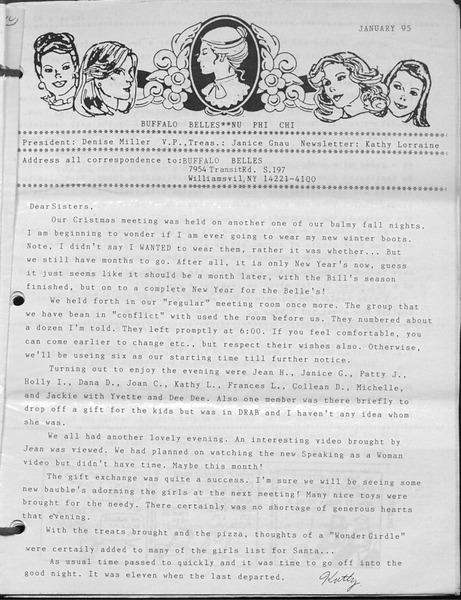 JANUARY 95
BUFFALO BELLES**NU PHI CHI
President: Denise Miller V.P.,Treas.: Janice Gnau Newsletter: Kathy Lorraine
Address all correspondence to:BUFFALO BELLES
7954 TransitRd. S.197
Williamsvil,NY 14221-4100
DearSisters,
Our Cristmas meeting was held on another one of our balmy fall nights.
I am beginning to wonder if I am ever going to wear my new winter boots.
Note, I didn't say I WANTED to wear them, rather it was whether... But
we still have months to go. After all, it is only New Year's now, guess
it just seems like it should be a month later, with the Bill's season
finished, but on to a complete New Year for the Belle's!
We held forth in our "regular" meeting room once more. The group that
we have bean in "conflict" with used the room before us. They numbered about
a dozen I'm told. They left promptly at 6:00. If you feel comfortable, you
can come earlier to change etc., but respect their wishes also. Otherwise,
we'll be useing six as our starting time till further notice.
Turning out to enjoy the evening were Jean H., Janice G., Patty J.,
Holly I., Dana D., Joan C., Kathy L., Frances L., Collean D., Michelle,
and Jackie with Yvette and Dee Dee. Also one member was there briefly to
drop off a gift for the kids but was in DRAB and I haven't any idea whom
she was.
We all had another lovely evening. An interesting video brought by
Jean was viewed. We had planned on watching the new Speaking as a Woman
video but didn't have time. Maybe this month!
The gift exchange was quite a success. I'm sure we will be seeing some
new bauble's adorning the girls at the next meeting! Many nice toys were
brought for the needy. There certainly was no shortage of generous hearts
that evening.
With the treats brought and the pizza, thoughts of a "Wonder Girdle"
were certaily added to many of the girls list for Santa...
As usual time passed to quickly and it was time to go off into the
good night. It was eleven when the last departed.
Kathy